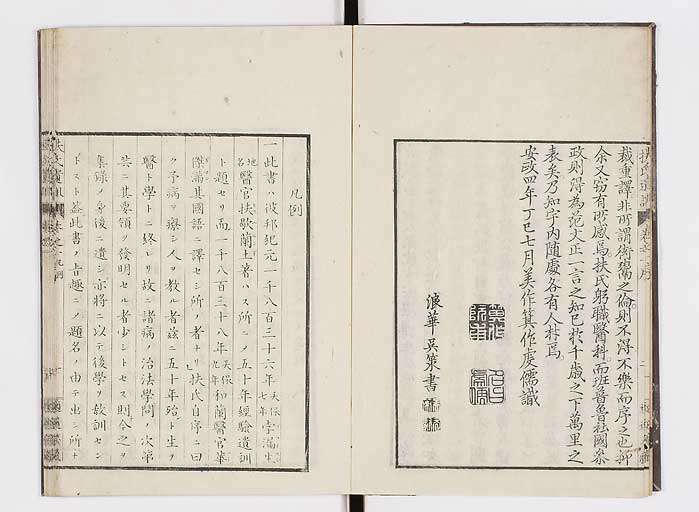 裁重譯非所謂衒鬻之倫則不得不樂而序之也抑
余又窃有所感焉扶氏躬職醫科而班普魯社國叅
政則得為范文正一言之知已於千歳之下萬里之
表矣乃知宇内随處各有人材焉
安政四年丁巳七月美作箕作慶儒識
浪華吳策書
凡例
一此書ハ彼邦紀元一千八百三十六年天保七年孛漏生
地名醫官扶歇蘭土著ハス所ニメ五十年經驗遺訓
ト題セリ而一千八百三十八年天保九年和蘭醫官
満其國語ニ譯セシ所ノ者トリ扶氏自序ニ曰
ク予病ヲ療シ人ヲ教ル者茲ニ五十年殆ト生ヲ
醫ト學トニ終レリ故ニ諸病ノ治法學問ノ次第
共ニ其要領ヲ發明セル者少シトセス則今之ヲ
集錄メ身後ニ遺シ亦將ニ以テ後學ヲ教訓セン
トスト葢此書ノ旨趣ニメ題名ノ由テ出シ所ト